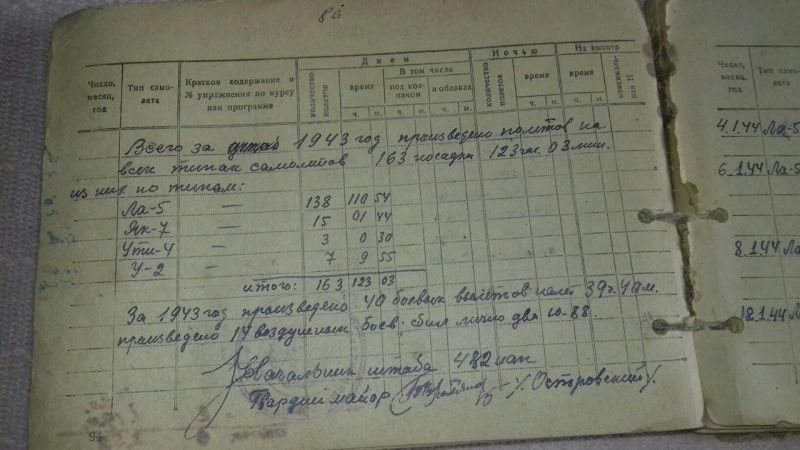 86
Днем
Ночью
На высоте
Число, месяц, год
Тип само-лета
Краткое содержание и № упражнения по курсу или программе
количество полетов
время
В том числе
под кол-паком
в облаках
количество полетов
время
время
максималь-ная Н
ч. м. ч. м. ч. м. ч. м. ч. м.
Всего за 1943 год произведено полетов на
всех типах самолетов 163 посадки 123 час. 03 мин.
из них по типам:
Ла-5 — 138 110 54
Як-7 — 15 01 44
Ути-4 — 3 0 30
У-2 — 7 9 55
итого: 163 123 03
За 1943 год произведено 40 боевых вылетов 39 ч. 49 м.
произведено 17 воздушных боев. сбил лично два Ю-88.
Начальник штаба 482 иап
Гвардии майор (Островский)
94
Число, месяц, год
Тип само-лета
4.1.44 Ла-5
6.1.44 Ла-5
8.1.44 Ла-5
12.1.44 Ла-5